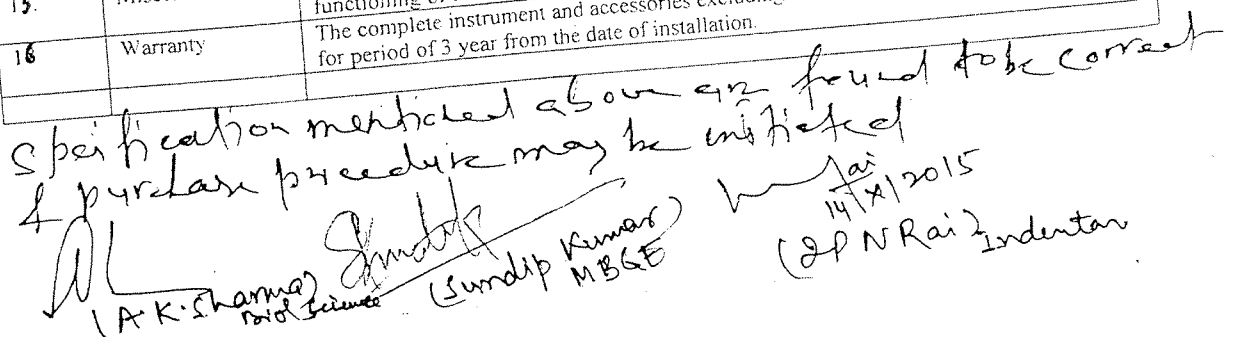 15.
functioning of
16 Warranty The complete instrument and accessories
for period of 3 year from the date of installation.
Speification mentioned above are found to be correct
& purchase procedure may be initiated
Rai
14/X/2015
(A.K. Sharma) (Sundip Kumar) (JPN Rai) Indentor
Biol Science MBGE